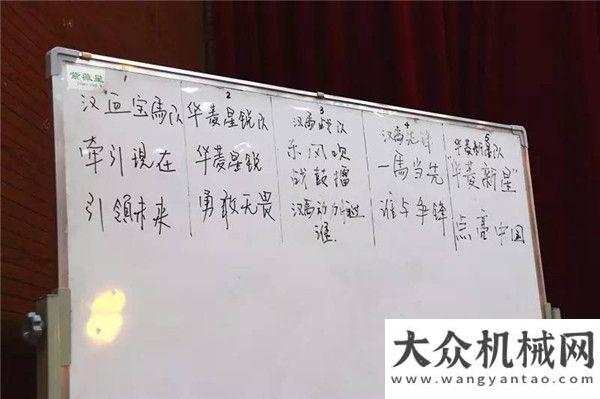 紫薇星
1
汉血宝馬队
牵引現在
引領未来
2
华菱星锐队
华菱星锐
勇敢无畏
3
汉馬战队
东风吹
战鼓擂
汉馬动力怕过
谁
4
汉馬先锋
一馬当先
谁与争锋
5
华菱新星队
"华菱新星"
点亮中国
大众机械网
www.wangyantao.com